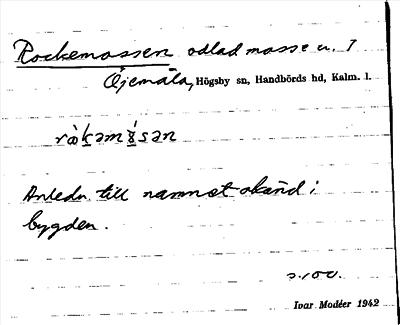 Rockemossen odlad mosse n. 7
Öjemåla, Högsby sn, Handbörds hd, Kalm. l.
Anledn. till namnet okänd i
bygden.
s. 100.
Ivar Modéer 1942